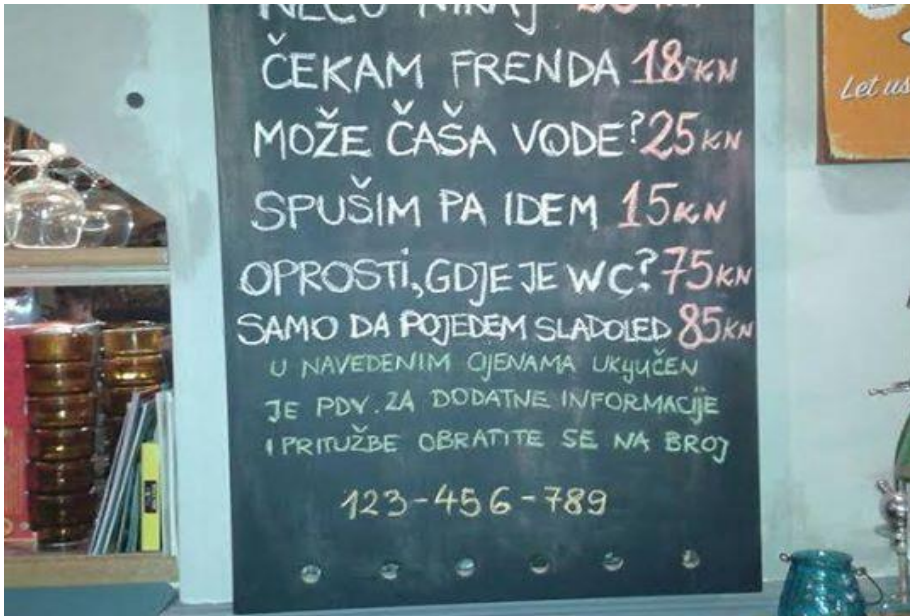 ČEKAM FRENDA 18 KN
MOŽE ČAŠA VODE? 25 KN
SPUŠIM PA IDEM 15 KN
OPROSTI, GDJE JE WC? 75 KN
SAMO DA POJEDEM SLADOLED 85 KN
U NAVEDENIM CIJENAMA UKLJUČEN
JE PDV. ZA DODATNE INFORMACIJE
I PRITUŽBE OBRATITE SE NA BROJ
123-456-789
Let us